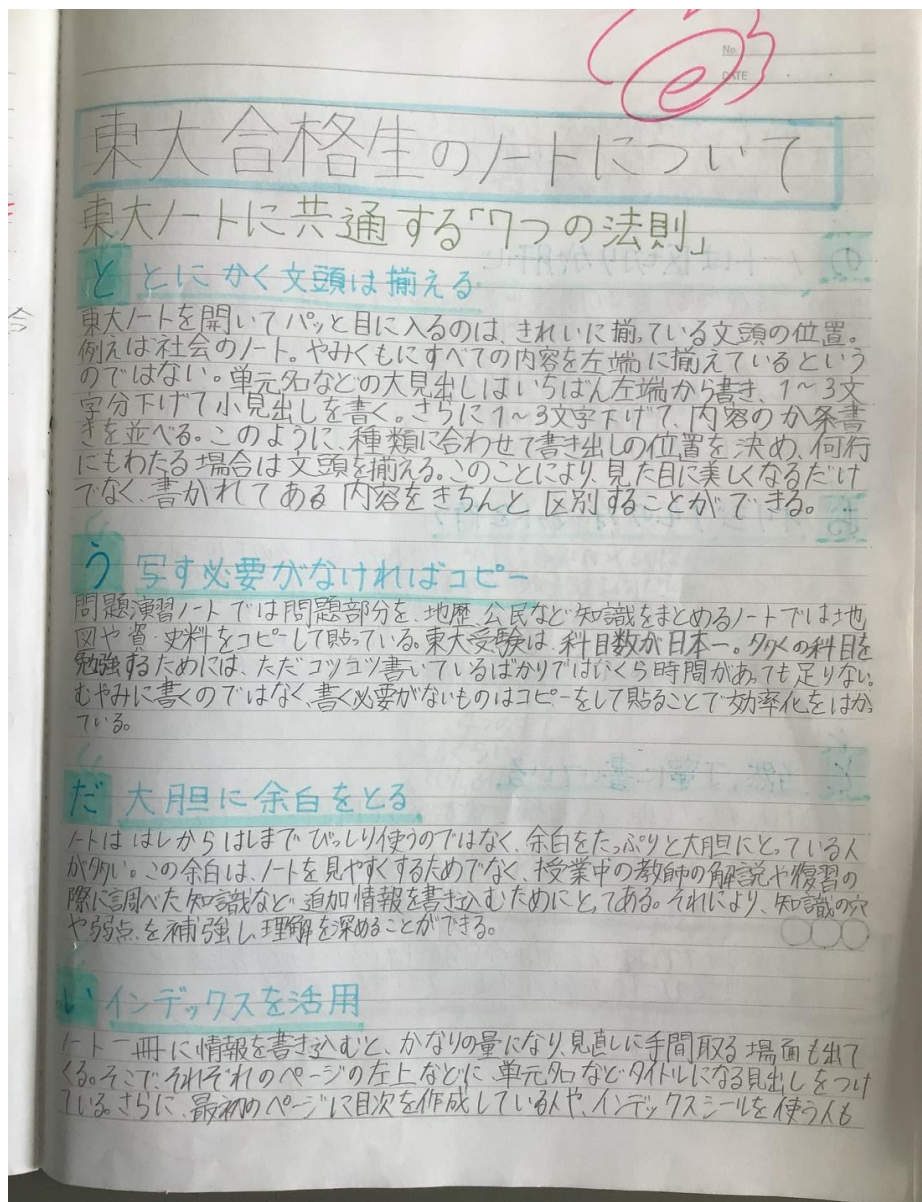 No.
DATE
東大合格生のノートについて
東大ノートに共通する「7つの法則」
と とにかく文頭は揃える
東大ノートを開いてパッと目に入るのは、きれいに揃っている文頭の位置。
例えば社会のノート。やみくもにすべての内容を左端に揃えているという
のではない。単元名などの大見出しはいちばん左端から書き、1～3文
字分下げて小見出しを書く。さらに1～3文字下げて、内容のか条書
きを並べる。このように、種類に合わせて書き出しの位置を決め、何行
にもわたる場合は文頭を揃える。このことにより、見た目に美しくなるだけ
でなく、書かれてある内容をきちんと区別することができる。
う 写す必要がなければコピー
問題演習ノートでは問題部分を、地歴、公民など知識をまとめるノートでは地
図や資・史料をコピーして貼っている。東大受験は、科目数が日本一。多くの科目を
勉強するためには、ただコツコツ書いているばかりではいくら時間があっても足りない。
むやみに書くのではなく、書く必要がないものはコピーをして貼ることで効率化をはかっ
ている。
だ 大胆に余白をとる
ノートははしからはしまでびっしり使うのではなく、余白をたっぷりと大胆にとっている人
が多い。この余白は、ノートを見やすくするためでなく、授業中の教師の解説や復習の
際に調べた知識など追加情報を書き込むためにとってある。それにより、知識の穴
や弱点を補強し理解を深めることができる。
い インデックスを活用
ノート一冊に情報を書き込むと、かなりの量になり、見直しに手間取る場面も出て
くる。そこでそれぞれのページの左上などに、単元名などタイトルになる見出しをつけ
ている。さらに、最初のページに目次を作成している人や、インデックスシールを使う人も